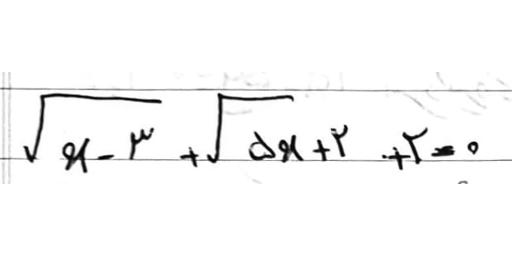 √(x-۳) + √(۵x+۲) + ۲ = ۰